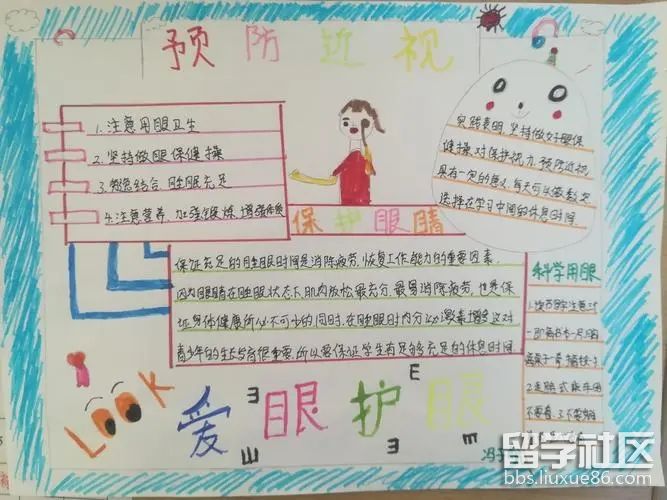 预防近视
1.注意用眼卫生
2.坚持做眼保健操
3.劳逸结合,睡眠充足
4.注意营养,加强锻炼,增强体质
保护眼睛
实践表明,坚持做好眼保
健操,对保护视力,预防近视
具有一定的意义,每天可以做数次
选择在学习中间的休息时间
保证充足的睡眠时间是消除疲劳,恢复工作能力的重要因素,
因为眼睛在睡眠状态下,肌肉放松最充分,最易消除疲劳,也是保
证身体健康所必不可少的同时,在睡眠时内分泌激素增多这对
青少年的生长发育很重要,所以要保证学生有足够充足的休息时间
科学用眼
LOOK
爱眼护眼
E
E
E
E
E
留学社区
bbs.liuxue86.com